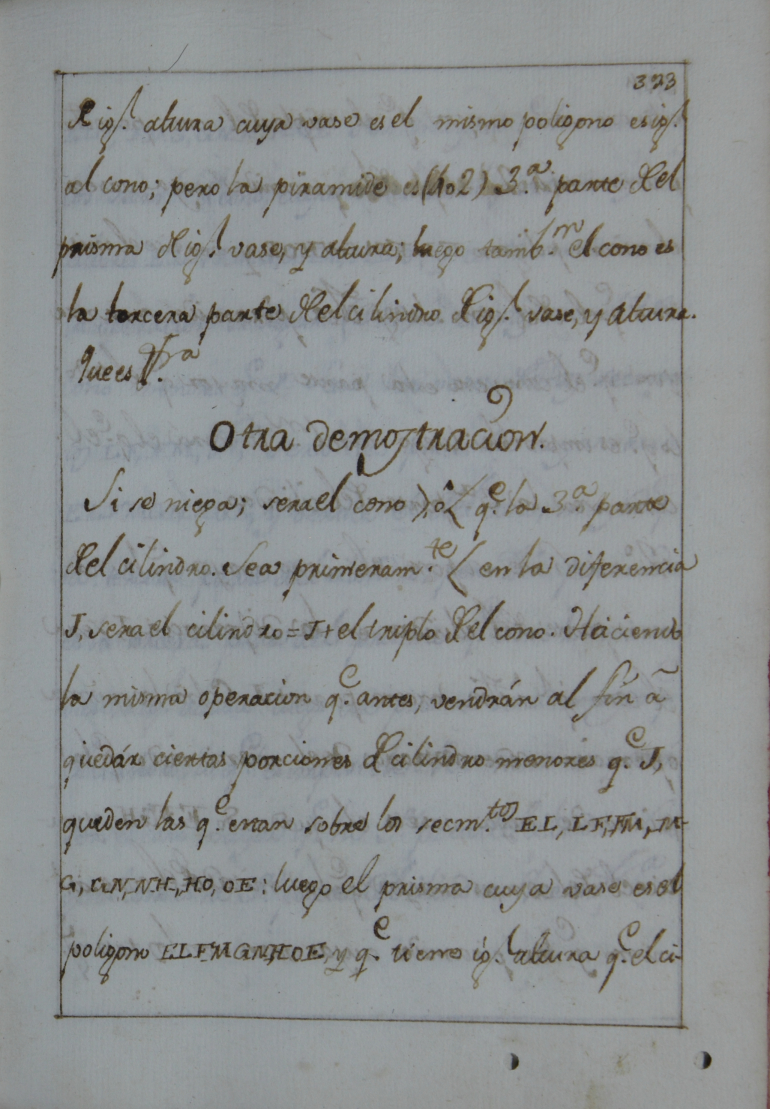 323
de ig.l altura cuya vase es el mismo poligono es ig.l
al cono; pero la piramide es (402) 3.a parte del
prisma de ig.l vase, y altura; luego tamb.n el cono es
la tercera parte del cilindro de ig.l vase, y altura.
que es
Otra demostracion.
Si se niega; sera el cono > o < q.e la 3.a parte
del cilindro. Sea primeram.te < en la diferencia
J, sera el cilindro = J + el triplo del cono. Haciendo
la misma operacion q.e antes, vendrán al fin à
quedár ciertas porciones de cilindro menores q.e J,
queden las q.e estan sobre los secm.tos EL, LF, FM, M-
G, GN, NH, HO, OE: luego el prisma cuya vase es el
poligono ELFMGNHOE, y q.e tiene ig.l altura q.e el ci-